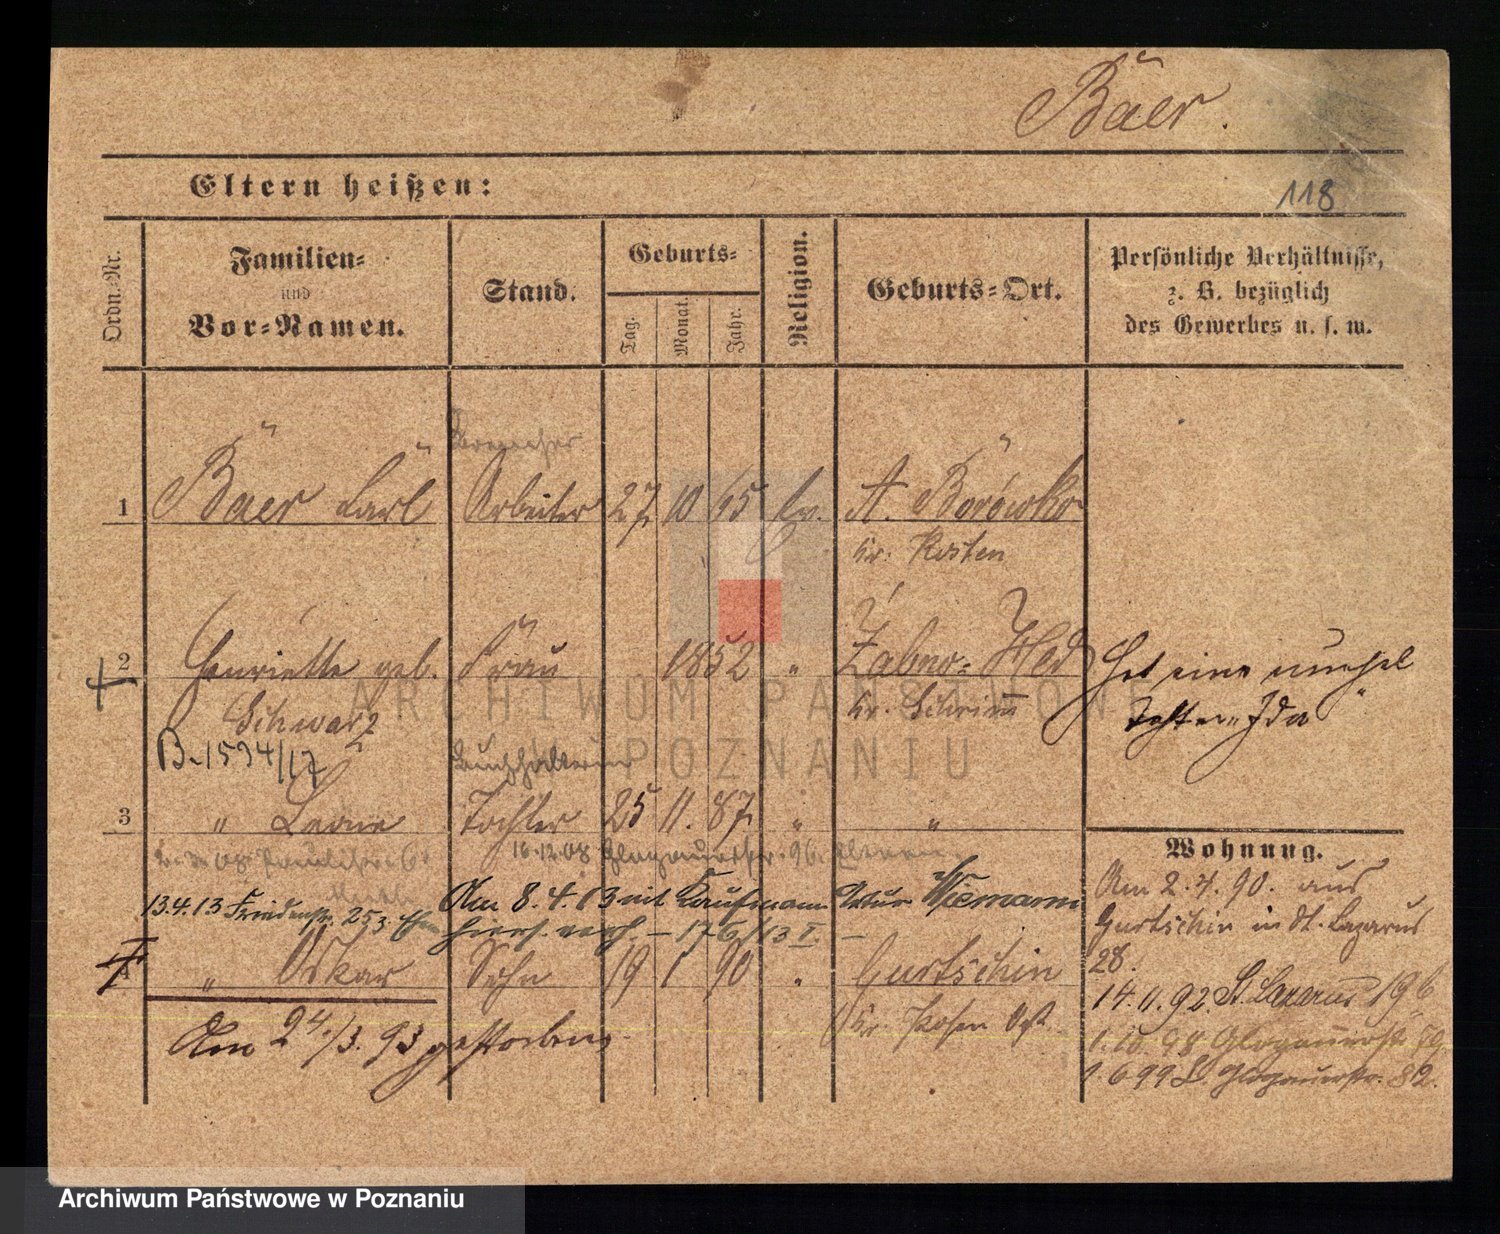 Bäer.
Eltern heißen:
118
Ordn.-Nr.
Familien-
und
Vor-Namen.
Stand.
Geburts-
Tag.
Monat.
Jahr.
Religion.
Geburts-Ort.
Persönliche Verhältnisse,
z. B. bezüglich
des Gewerbes u. s. w.
1 Bäer Carl Arbeiter 27 10 65 Ev. A. Borówko
Kr. Kosten
2 Henriette geb. Frau 1852 " Zabno-
Schwarz Kr. Schrimm
Hat eine
Tochter "Ida"
B-1594/17
3 " Tochter 25 11. 87 " "
16.12.08 Glogauerstr. 96
13.4.13 Friedenstr. 25 Am 8.4.13 mit Kaufmann Artur Wiemann
verh. - 176/13 I. -
4 " Oskar Sohn 19 1 90 " Gurtschin
Kr. Posen Ost
Am 24./3. 93 gestorben.
Wohnung.
Am 2.4.90. aus
Gurtschin in St. Lazarus
28.
14.11.92. St. Lazarus 196
1.10.98 Glogauerstr.
1.6.99 Glogauerstr. 82.
ARCHIWUM PAŃSTWOWE
W POZNANIU
Archiwum Państwowe w Poznaniu